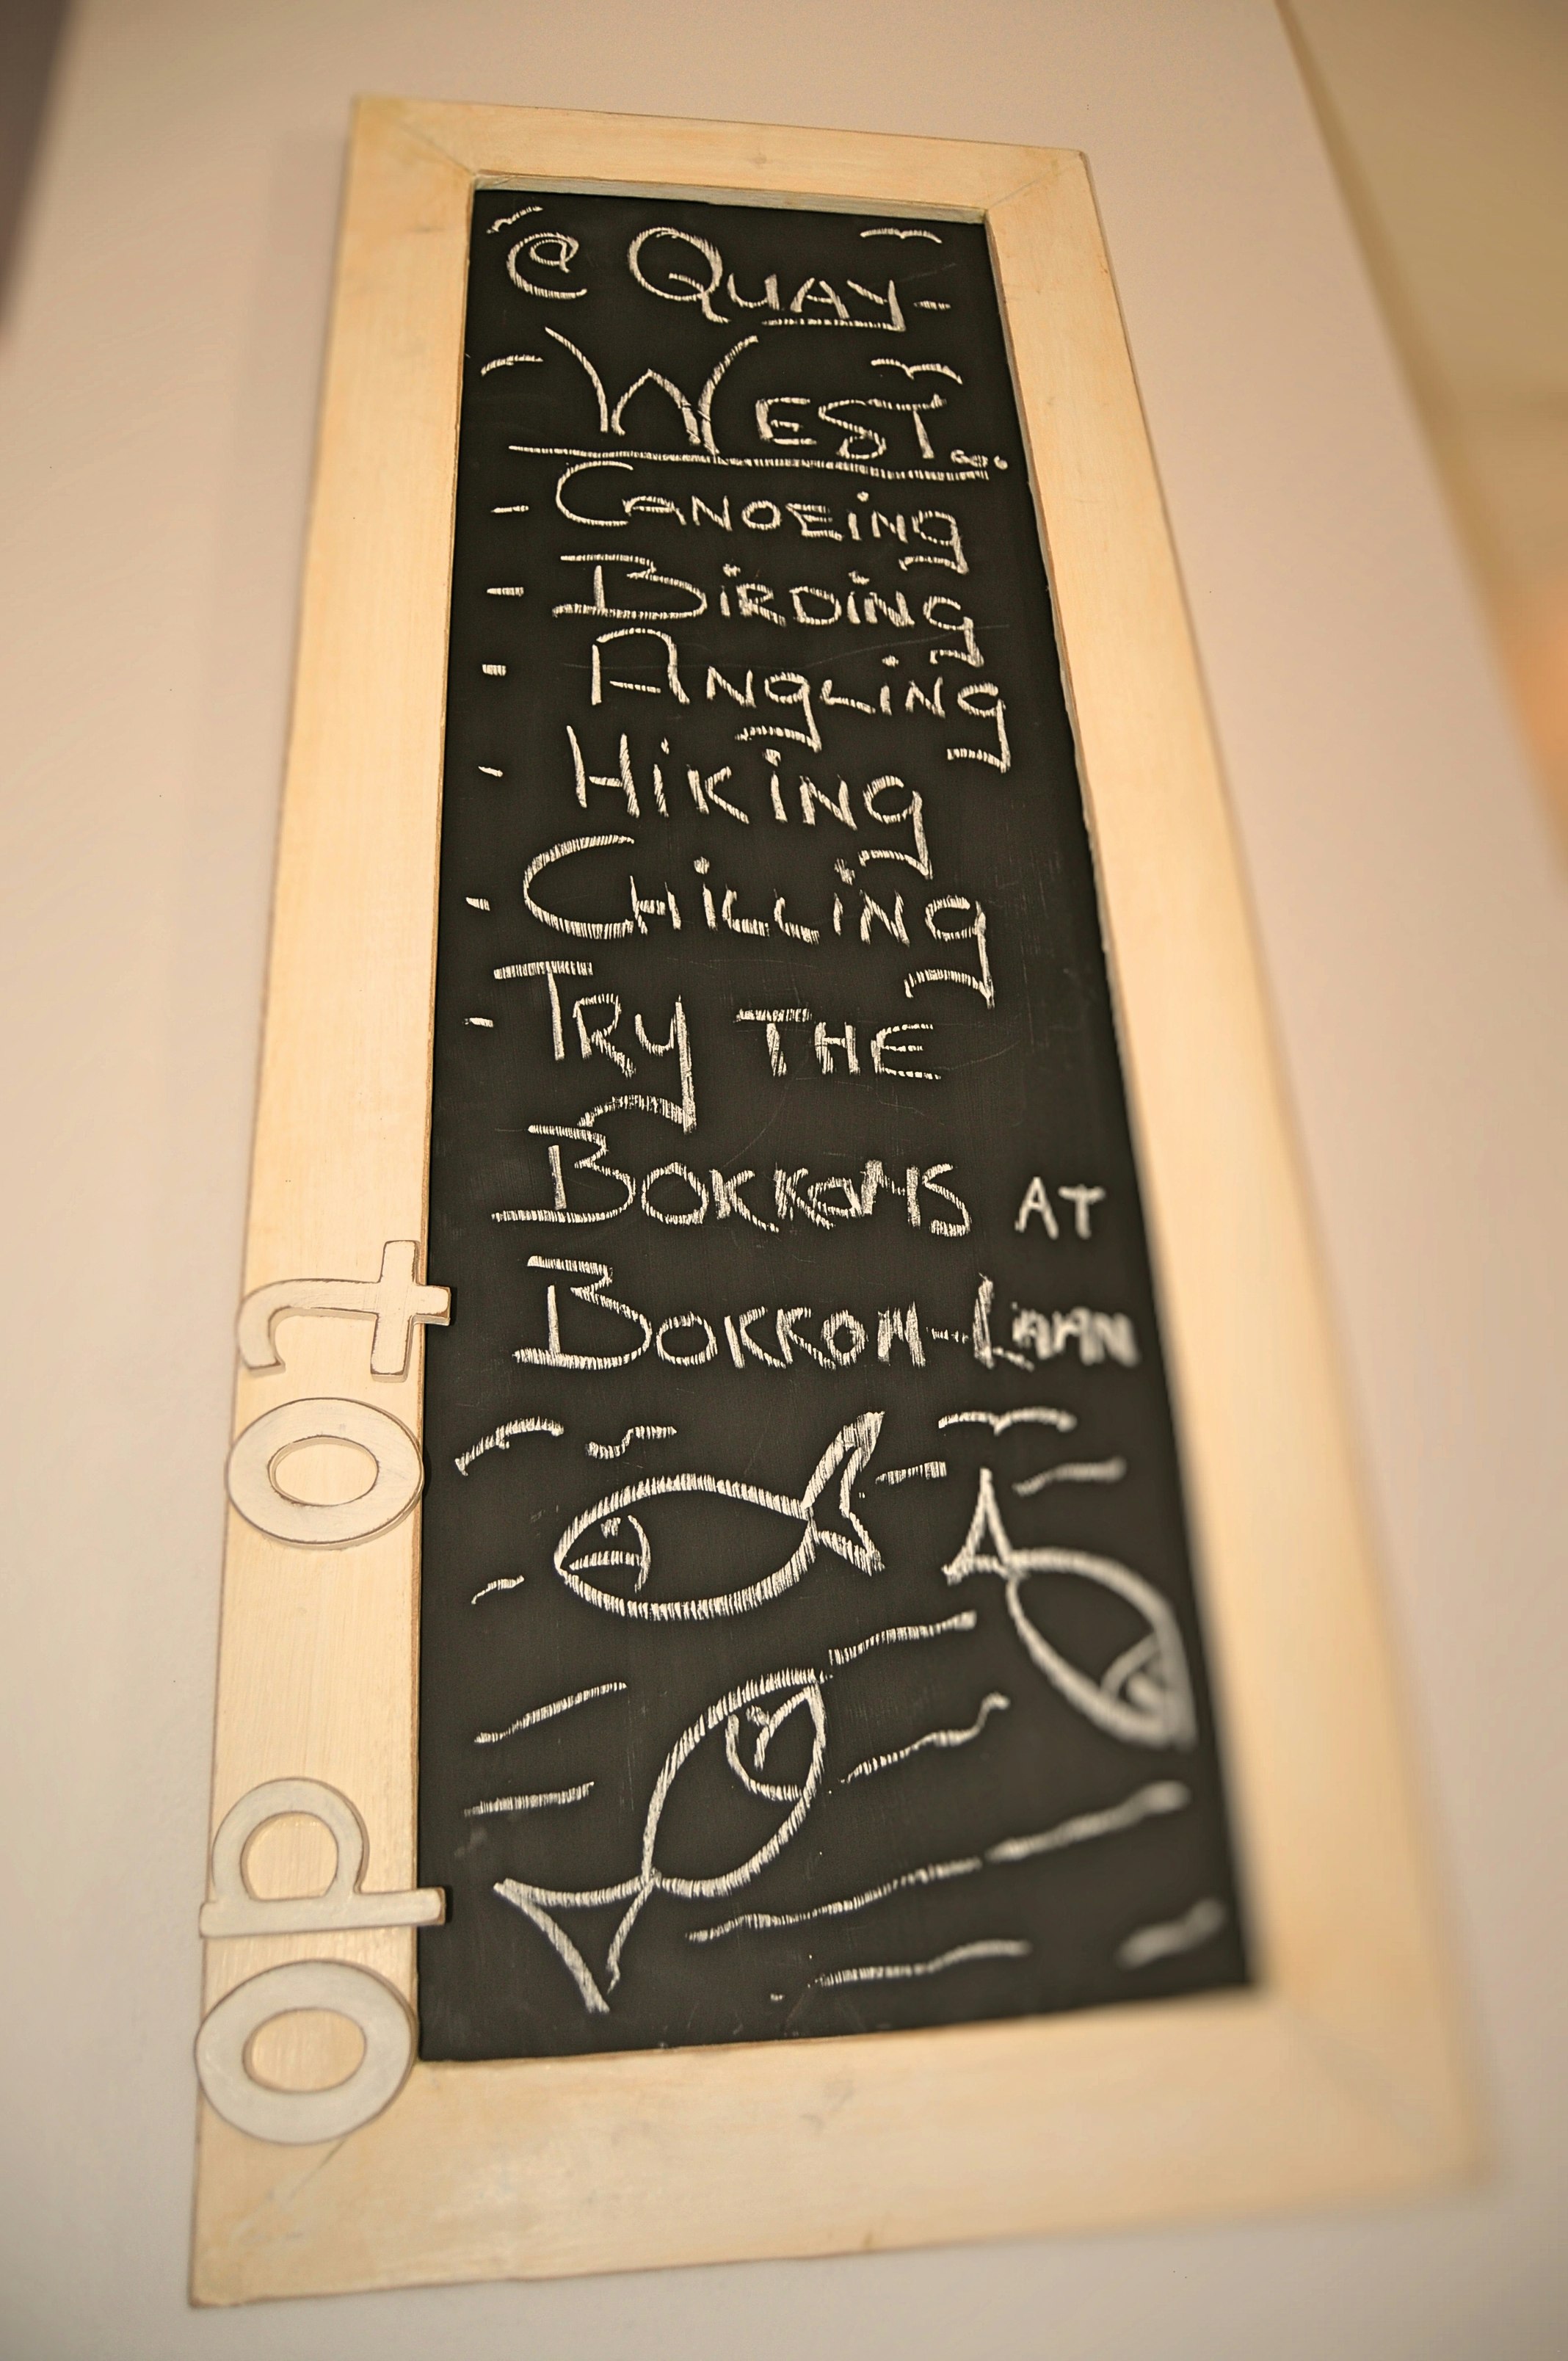 @ QUAY-
WEST...
- CANOEiNg
- BiRDiNg
- ANgLiNg
- HiKiNg
- CHiLLiNg
- TRy THE
BOKKOMS AT
BOKKOM-LAAN
to do